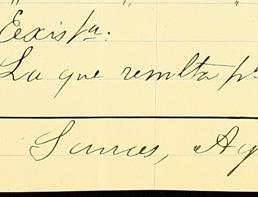 Eexis fa.
La que remlta p
Sances, Ay